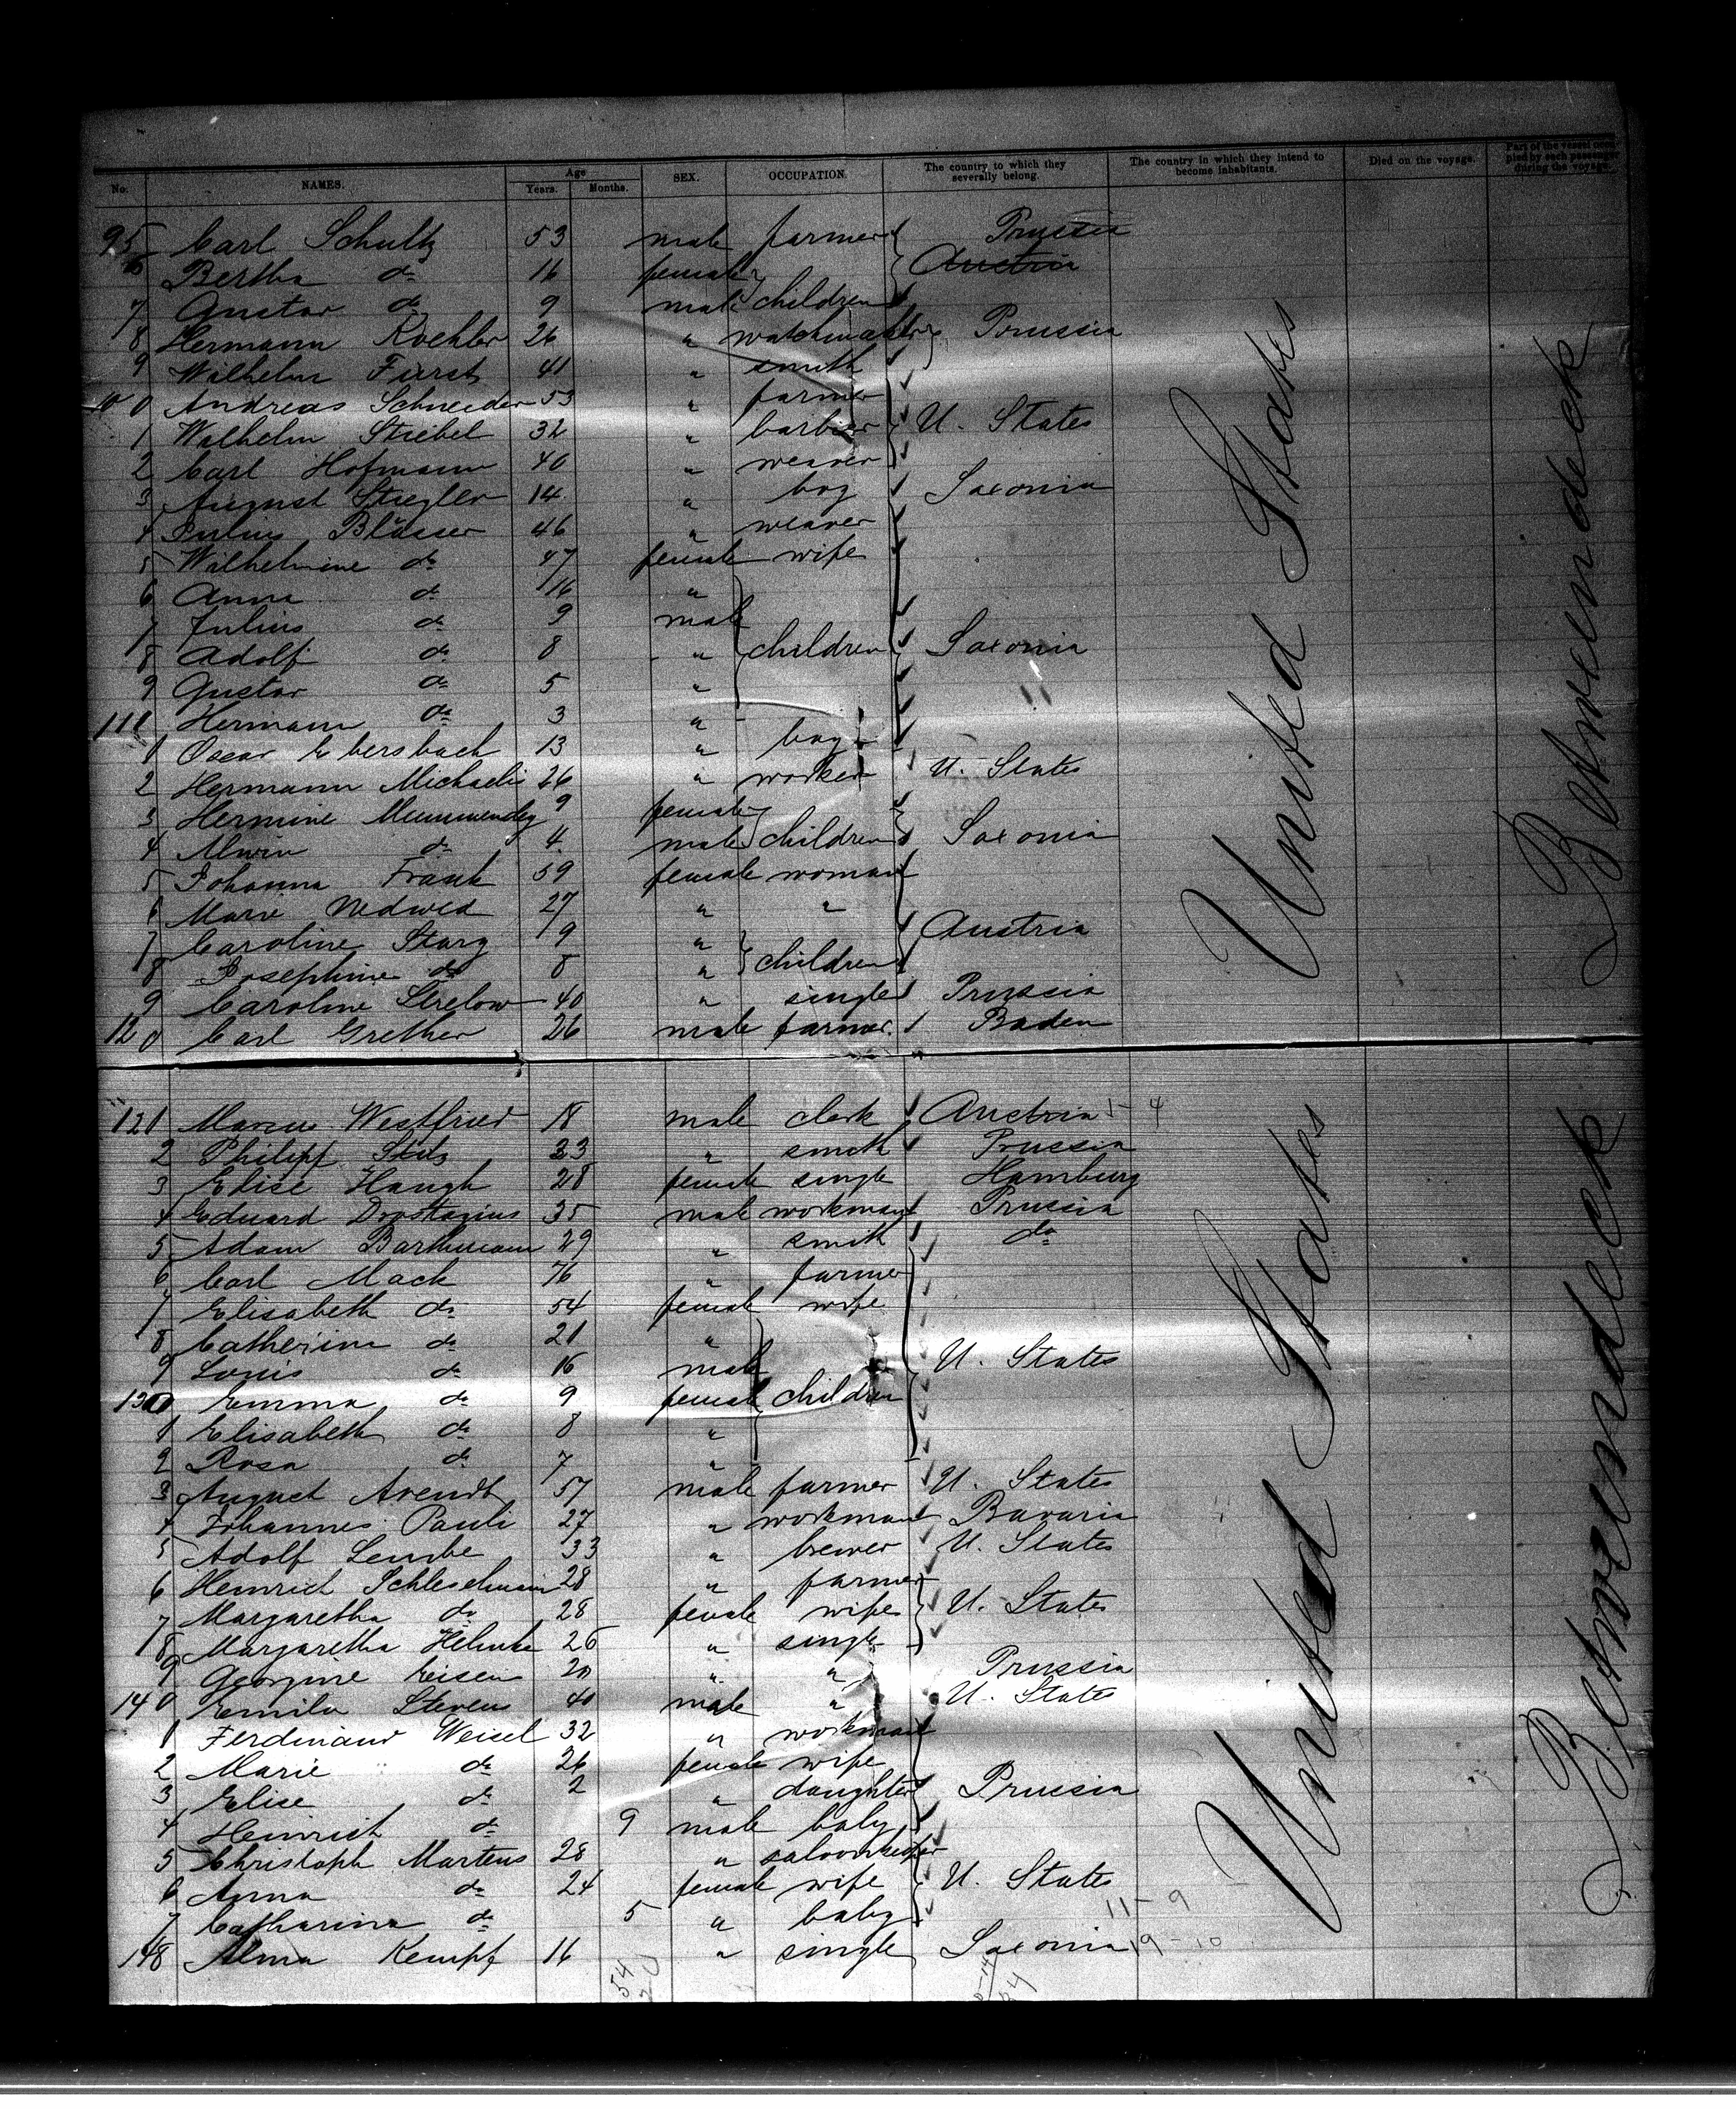 No. NAMES. Age Years. Months. SEX. OCCUPATION. The country to which they severally belong. The country in which they intend to become inhabitants. Died on the voyage. Part of the vessel occupied by each passenger during the voyage.
95 Carl Schultz 53 male farmer Prussia
6 Bertha do 16 female Austria
7 Gustav do 9 male children
8 Hermann Koehler 26 " watchmaker Prussia
9 Wilhelm Fürst 41 " smith
100 Andreas Schneider 53 " farmer
1 Wilhelm Striebel 32 " barbier U. States
2 Carl Hofmann 40 " weaver
3 August Stiegler 14 " boy Saxonia
4 Julius Blüsser 46 " weaver
5 Wilhelmine do 47 female wife
6 Anna do 16 "
7 Julius do 9 male
8 Adolf do 8 " children Saxonia
9 Gustav do 5 "
110 Hermann do 3 "
1 Oscar Ebersbach 13 " boy
2 Hermann Michaelis 26 " worker U. States
3 Hermine 9 female
4 Alwin do 4 male children Saxonia
5 Johanna Frank 59 female woman
6 Marie Nedwed 27 " "
7 Caroline Starg 9 " Austria
8 Josephine do 8 " children
9 Caroline Strelow 40 " single Prussia
120 Carl Grether 26 male farmer Baden
United States
Between deck
121 Marcus Westfried 18 male clerk Austria
2 Philipp 33 " smith Prussia
3 Elise Haugh 28 female single Hamburg
4 Eduard 35 male workman Prussia
5 Adam 29 " smith do
6 Carl Mack 76 " farmer
7 Elisabeth do 54 female wife
8 Catherina do 21 "
9 Louis do 16 male U. States
130 Emma do 9 female children
1 Elisabeth do 8 "
2 Rosa do 7 "
3 August Arendt 57 male farmer U. States
4 Johannes Pauli 27 " workman Bavaria
5 Adolf Lembe 33 " brewer U. States
6 Heinrich 28 " farmer
7 Margaretha do 28 female wife U. States
8 Margaretha Helmke 26 " single
9 Georgine Eisen 20 " " Prussia
140 Emila Stevens 40 male " U. States
1 Ferdinand Weisel 32 " workman
2 Marie do 26 female wife
3 Elise do 2 " daughter Prussia
4 Heinrich do 9 male baby
5 Christoph Martens 28 " saloonkeeper
6 Anna do 24 female wife U. States
7 Catharina do 5 " baby 11-9
148 Alma Kempf 16 " single Saxonia 19-10
54
24
United States
Between deck